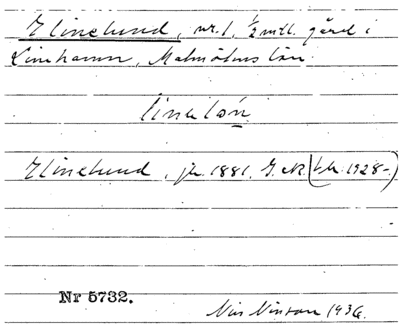 Elinelund, nr. 1, ½ mtl. gård i
Limhamn, Malmöhus län.
Elinelund, jb. 1881, G. A. K.
Nr 5732.
Nils Nilsson 1936.